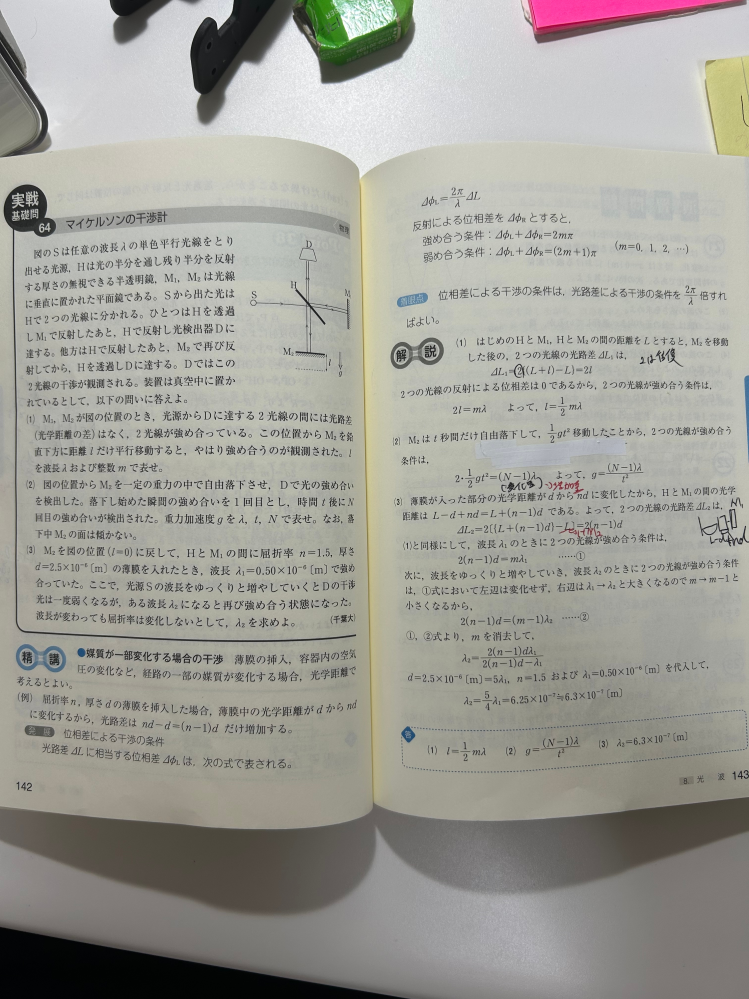 実戦
基礎問
64 マイケルソンの干渉計
物理
図のSは任意の波長λの単色平行光線をとり
出せる光源,Hは光の半分を通し残り半分を反射
する厚さの無視できる半透明鏡,M₁,M₂は光線
に垂直に置かれた平面鏡である。Sから出た光は
Hで2つの光線に分かれる。ひとつはHを透過
しM₁で反射したあと,Hで反射し光検出器Dに
達する。他方はHで反射したあと,M₂で再び反
射してから,Hを透過しDに達する。Dではこの
2光線の干渉が観測される。装置は真空中に置か
れているとして,以下の問いに答えよ。
D
H
S
M
M₂
l
g
(1) M₁,M₂が図の位置のとき,光源からDに達する2光線の間には光路差
(光学距離の差)はなく,2光線が強め合っている。この位置からM₂を鉛
直下方に距離lだけ平行移動すると,やはり強め合うのが観測された。l
を波長λおよび整数mで表せ。
(2) 図の位置からM₂を一定の重力の中で自由落下させ,Dで光の強め合い
を検出した。落下し始めた瞬間の強め合いを1回目とし,時間t後にN
回目の強め合いが検出された。重力加速度gをλ,t,Nで表せ。なお,落
下中M₂の面は傾かない。
(3) M₂を図の位置(l=0)に戻して,HとM₁の間に屈折率n=1.5,厚さ
d=2.5×10⁻⁶〔m〕の薄膜を入れたとき,波長λ₁=0.50×10⁻⁶〔m〕で強め
合っていた。ここで,光源Sの波長をゆっくりと増やしていくとDの干渉
光は一度弱くなるが,ある波長λ₂になると再び強め合う状態になった。
波長が変わっても屈折率は変化しないとして,λ₂を求めよ。 (千葉大)
精講
●媒質が一部変化する場合の干渉 薄膜の挿入,容器内の空気
圧の変化など,経路の一部の媒質が変化する場合,光学距離で
考えるとよい。
(例) 屈折率n,厚さdの薄膜を挿入した場合,薄膜中の光学距離がdからnd
に変化するから,光路差は nd−d=(n−1)d だけ増加する。
位相差による干渉の条件
光路差ΔLに相当する位相差Δφ_Lは,次の式で表される。
142
Δφ_L=2π/λ ΔL
反射による位相差をΔφ_Rとすると,
強め合う条件:Δφ_L+Δφ_R=2mπ
弱め合う条件:Δφ_L+Δφ_R=(2m+1)π (m=0,1,2,…)
着眼点 位相差による干渉の条件は,光路差による干渉の条件を 2π/λ 倍すれ
ばよい。
解説
(1) はじめのHとM₁,HとM₂の間の距離をLとすると,M₂を移動
した後の,2つの光線の光路差ΔL₁は, 2は往復
ΔL₁=2{(L+l)−L}=2l
2つの光線の反射による位相差は0であるから,2つの光線が強め合う条件は,
2l=mλ よって,l=1/2 mλ
(2) M₂はt秒間だけ自由落下して,1/2 gt²移動したことから,2つの光線が強め合う
条件は,
2・1/2 gt²=(N−1)λ よって,g=(N−1)λ/t²
(3) 薄膜が入った部分の光学距離がdからndに変化したから,HとM₁の間の光学
距離は L−d+nd=L+(n−1)d である。よって,2つの光線の光路差ΔL₂は,
ΔL₂=2[{L+(n−1)d}−L]=2(n−1)d
M₁
(1)と同様にして,波長λ₁のときに2つの光線が強め合う条件は,
2(n−1)d=mλ₁ ……①
次に,波長をゆっくりと増やしていき,波長λ₂のときに2つの光線が強め合う条件
は,①式において左辺は変化せず,右辺はλ₁→λ₂と大きくなるのでm→m−1と
小さくなるから,
2(n−1)d=(m−1)λ₂ ……②
①,②式より,mを消去して,
λ₂=2(n−1)dλ₁/2(n−1)d−λ₁
d=2.5×10⁻⁶〔m〕=5λ₁,n=1.5 およびλ₁=0.50×10⁻⁶〔m〕を代入して,
λ₂=5/4 λ₁=6.25×10⁻⁷≒6.3×10⁻⁷〔m〕
答
(1) l=1/2 mλ (2) g=(N−1)λ/t² (3) λ₂=6.3×10⁻⁷〔m〕
8 光 波 143